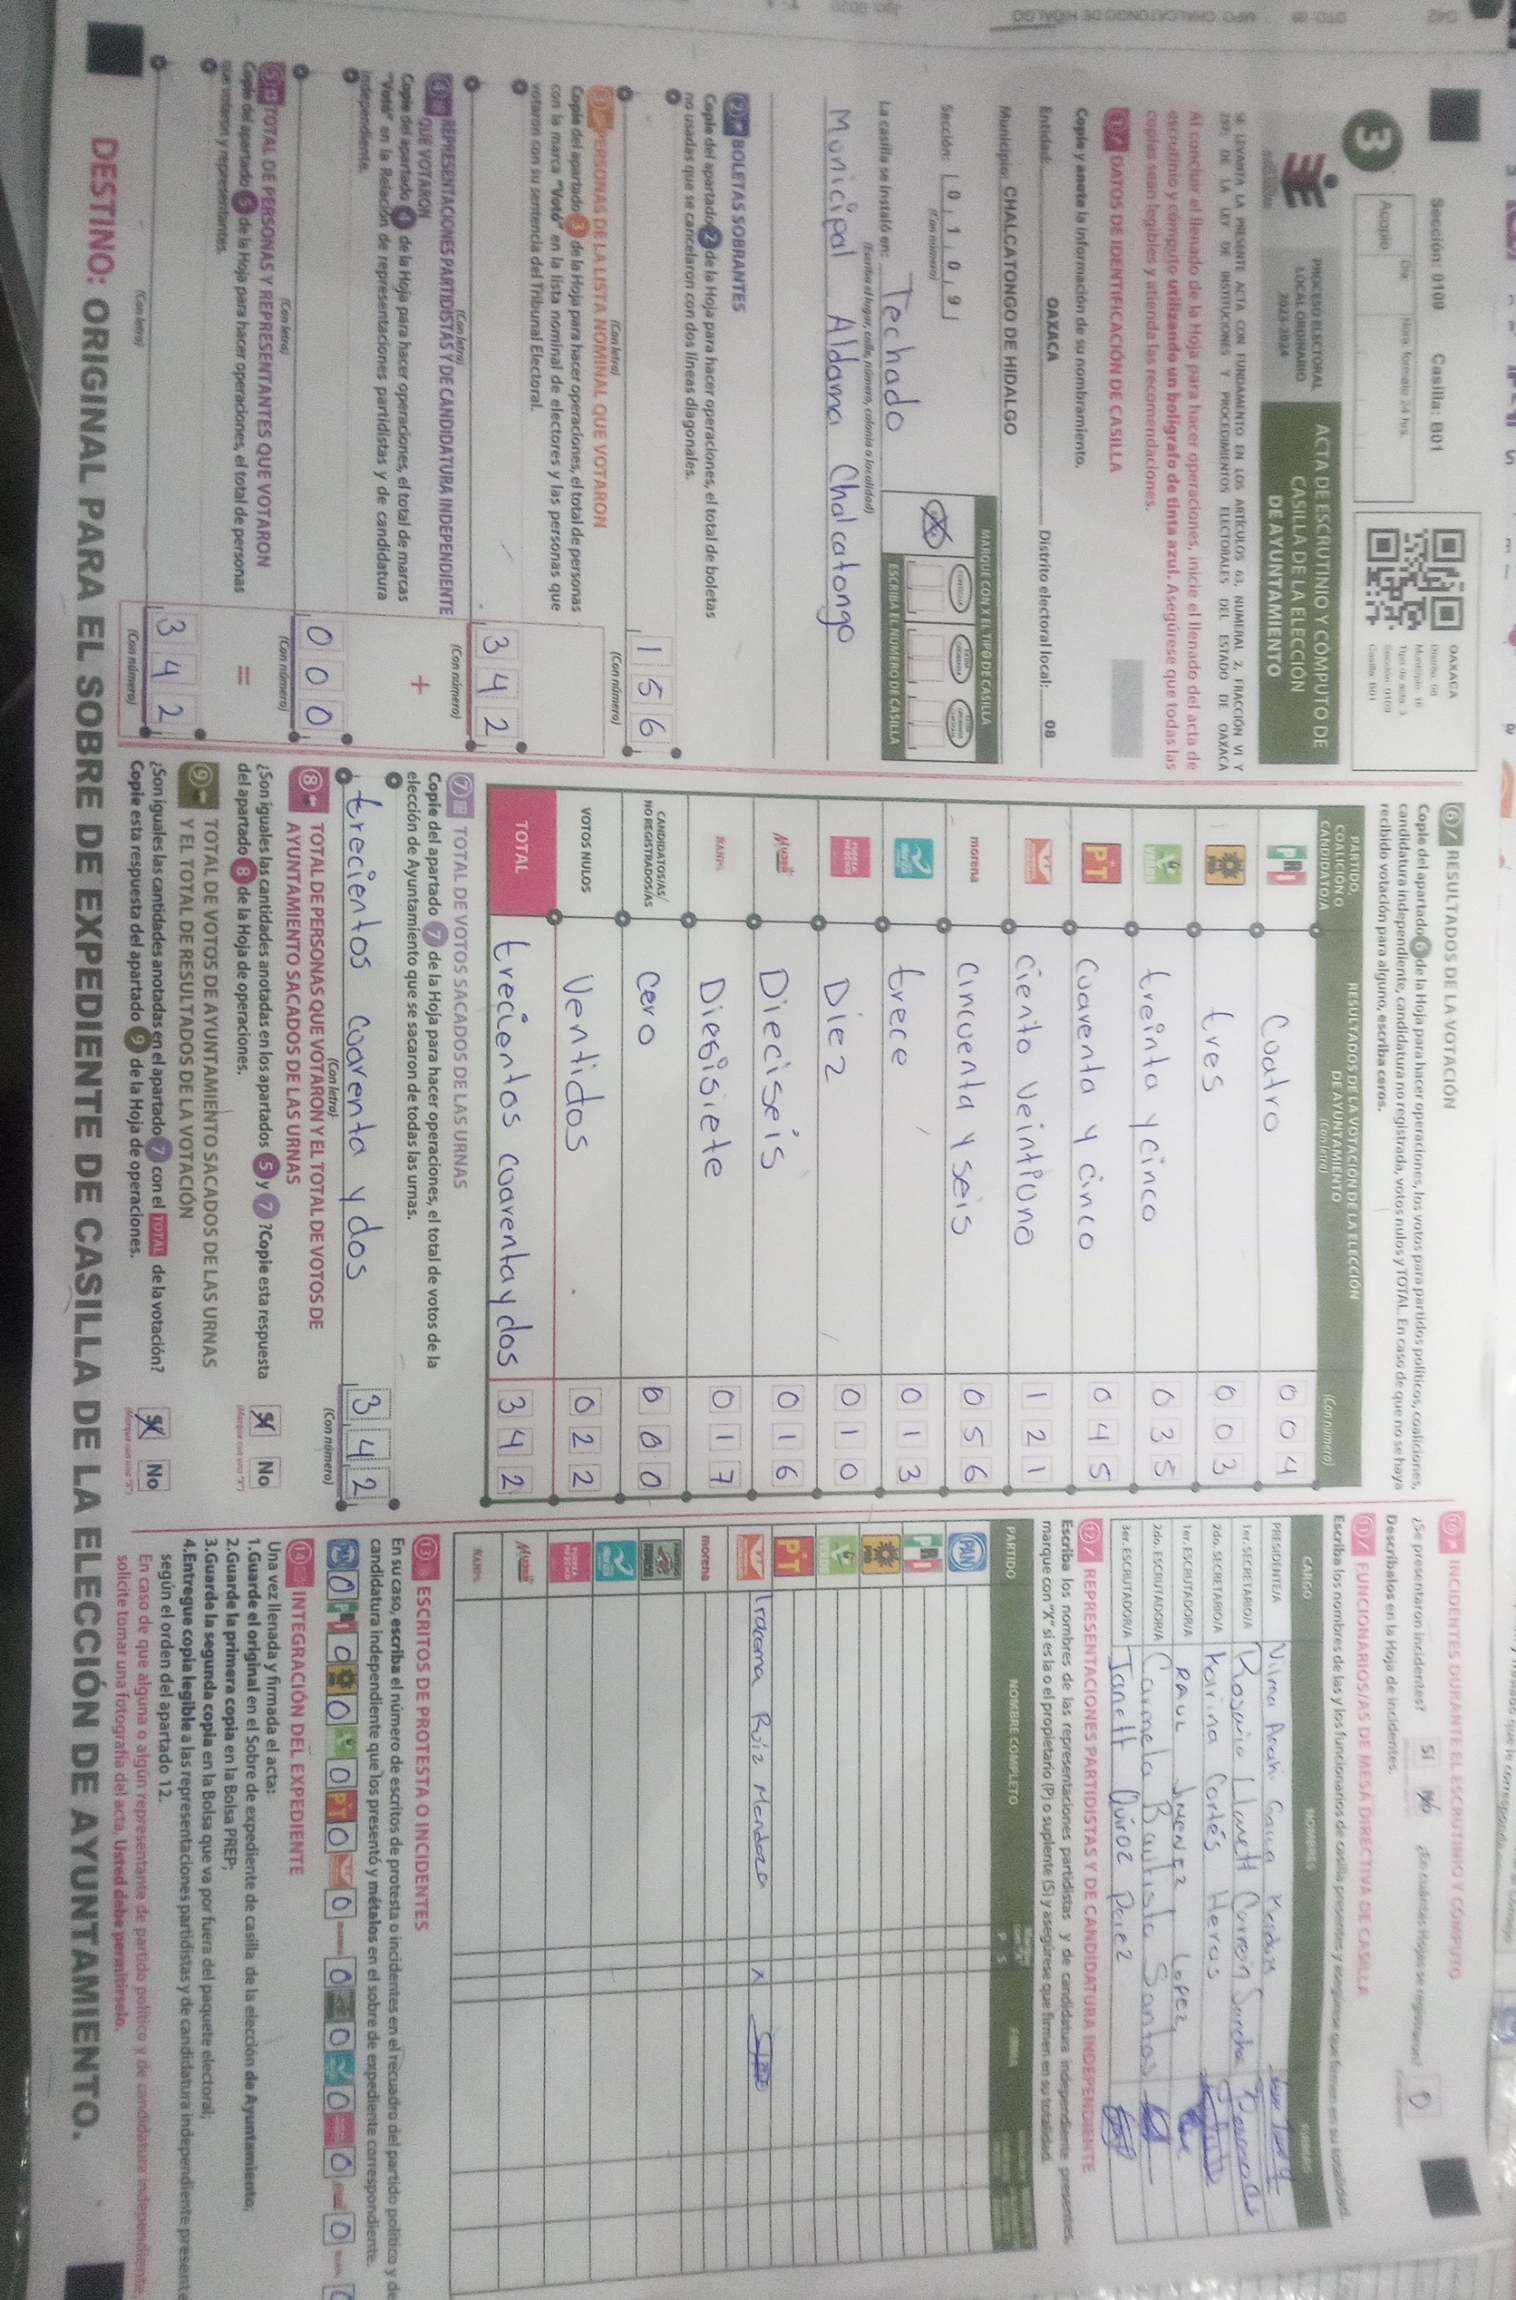 Sección: 0109 Casilla: B01
Día Hora: formato 24 hrs.
Acopio
3
OAXACA
Distrito: 08
Municipio: 16
Tipo de acta: 3
Sección: 0109
Casilla: B01
PROCESO ELECTORAL
LOCAL ORDINARIO
2023-2024
ACTA DE ESCRUTINIO Y CÓMPUTO DE
CASILLA DE LA ELECCIÓN
DE AYUNTAMIENTO
SE LEVANTA LA PRESENTE ACTA CON FUNDAMENTO EN LOS ARTÍCULOS 63, NUMERAL 2, FRACCIÓN VI Y
DE LA LEY DE INSTITUCIONES Y PROCEDIMIENTOS ELECTORALES DEL ESTADO DE OAXACA
Al concluir el llenado de la Hoja para hacer operaciones, inicie el llenado del acta de
escrutinio y cómputo utilizando un bolígrafo de tinta azul. Asegúrese que todas las
copias sean legibles y atienda las recomendaciones.
1 DATOS DE IDENTIFICACIÓN DE CASILLA
Copie y anote la información de su nombramiento.
Entidad: OAXACA Distrito electoral local: 08
Municipio: CHALCATONGO DE HIDALGO
Sección: 0 1 0 9
(Con número)
MARQUE CON X EL TIPO DE CASILLA
ESCRIBA EL NÚMERO DE CASILLA
La casilla se instaló en: Techado
(Escriba el lugar, calle, número, colonia o localidad)
Monicipal Aldama Chalcatongo
2 BOLETAS SOBRANTES
Copie del apartado 2 de la Hoja para hacer operaciones, el total de boletas
no usadas que se cancelaron con dos líneas diagonales.
156
(Con letra) (Con número)
3 PERSONAS DE LA LISTA NOMINAL QUE VOTARON
Copie del apartado 3 de la Hoja para hacer operaciones, el total de personas
con la marca "Votó" en la lista nominal de electores y las personas que
votaron con su sentencia del Tribunal Electoral.
342
(Con letra) (Con número)
4 REPRESENTACIONES PARTIDISTAS Y DE CANDIDATURA INDEPENDIENTE
QUE VOTARON
Copie del apartado 4 de la Hoja para hacer operaciones, el total de marcas
"Votó" en la Relación de representaciones partidistas y de candidatura
independiente.
+
000
(Con letra) (Con número)
5 TOTAL DE PERSONAS Y REPRESENTANTES QUE VOTARON
Copie del apartado 5 de la Hoja para hacer operaciones, el total de personas
que votaron y representantes.
=
342
(Con letra) (Con número)
6 RESULTADOS DE LA VOTACIÓN
Copie del apartado 6 de la Hoja para hacer operaciones, los votos para partidos políticos, coaliciones,
candidatura independiente, candidatura no registrada, votos nulos y TOTAL. En caso de que no se haya
recibido votación para alguno, escriba ceros.
PARTIDO,
COALICIÓN O
CANDIDATO/A
RESULTADOS DE LA VOTACIÓN DE LA ELECCIÓN
DE AYUNTAMIENTO
(Con letra)
(Con número)
PRI Coatro 004
PRD tres 003
VERDE treinta y cinco 035
PT Cuaventa y cinco 045
Ciento Veintiuno 121
morena Cincuenta y seis 056
trece 013
Diez 010
Mujer Dieciseis 016
Diesisiete 017
CANDIDATOS/AS/
NO REGISTRADOS/AS Cero 000
VOTOS NULOS Ventidos 022
TOTAL trecientos coarenta y dos 342
7 TOTAL DE VOTOS SACADOS DE LAS URNAS
Copie del apartado 7 de la Hoja para hacer operaciones, el total de votos de la
elección de Ayuntamiento que se sacaron de todas las urnas.
trecientos coarenta y dos 342
(Con letra) (Con número)
8 TOTAL DE PERSONAS QUE VOTARON Y EL TOTAL DE VOTOS DE
AYUNTAMIENTO SACADOS DE LAS URNAS
¿Son iguales las cantidades anotadas en los apartados 5 y 7 ? Copie esta respuesta
del apartado 8 de la Hoja de operaciones.
Sí No
(Marque con una "X")
9 TOTAL DE VOTOS DE AYUNTAMIENTO SACADOS DE LAS URNAS
Y EL TOTAL DE RESULTADOS DE LA VOTACIÓN
¿Son iguales las cantidades anotadas en el apartado 7 con el TOTAL de la votación?
Copie esta respuesta del apartado 9 de la Hoja de operaciones.
Sí No
(Marque con una "X")
10 INCIDENTES DURANTE EL ESCRUTINIO Y CÓMPUTO
¿Se presentaron incidentes? Sí No ¿En cuántas Hojas se registraron? 0
Descríbalos en la Hoja de incidentes.
11 FUNCIONARIOS/AS DE MESA DIRECTIVA DE CASILLA
Escriba los nombres de las y los funcionarios de casilla presentes y asegúrese que firmen en su totalidad.
CARGO NOMBRES FIRMAS
PRESIDENTE/A Vilma
1er. SECRETARIO/A Rosario
2do. SECRETARIO/A Karina Cortés Heras
1er. ESCRUTADOR/A RAUL JIMENEZ LOPEZ
2do. ESCRUTADOR/A Carmela Bautista Santos
3er. ESCRUTADOR/A Janett Quiroz Perez
12 REPRESENTACIONES PARTIDISTAS Y DE CANDIDATURA INDEPENDIENTE
Escriba los nombres de las representaciones partidistas y de candidatura independiente presentes,
marque con "X" si es la o el propietario (P) o suplente (S) y asegúrese que firmen en su totalidad.
PARTIDO NOMBRE COMPLETO P S FIRMA
PAN
PRI
PRD
VERDE
PT
Iracema Ruiz Mendoza X
morena
Mujer
13 ESCRITOS DE PROTESTA O INCIDENTES
En su caso, escriba el número de escritos de protesta o incidentes en el recuadro del partido político y de
candidatura independiente que los presentó y métalos en el sobre de expediente correspondiente.
PAN 0 PRI 0 PRD 0 VERDE 0 PT 0 0 morena 0 0 0 0 0
14 INTEGRACIÓN DEL EXPEDIENTE
Una vez llenada y firmada el acta:
1.Guarde el original en el Sobre de expediente de casilla de la elección de Ayuntamiento;
2.Guarde la primera copia en la Bolsa PREP;
3.Guarde la segunda copia en la Bolsa que va por fuera del paquete electoral;
4.Entregue copia legible a las representaciones partidistas y de candidatura independiente presente
según el orden del apartado 12.
En caso de que alguna o algún representante de partido político y de candidatura independiente
solicite tomar una fotografía del acta, Usted debe permitírselo.
DESTINO: ORIGINAL PARA EL SOBRE DE EXPEDIENTE DE CASILLA DE LA ELECCIÓN DE AYUNTAMIENTO.